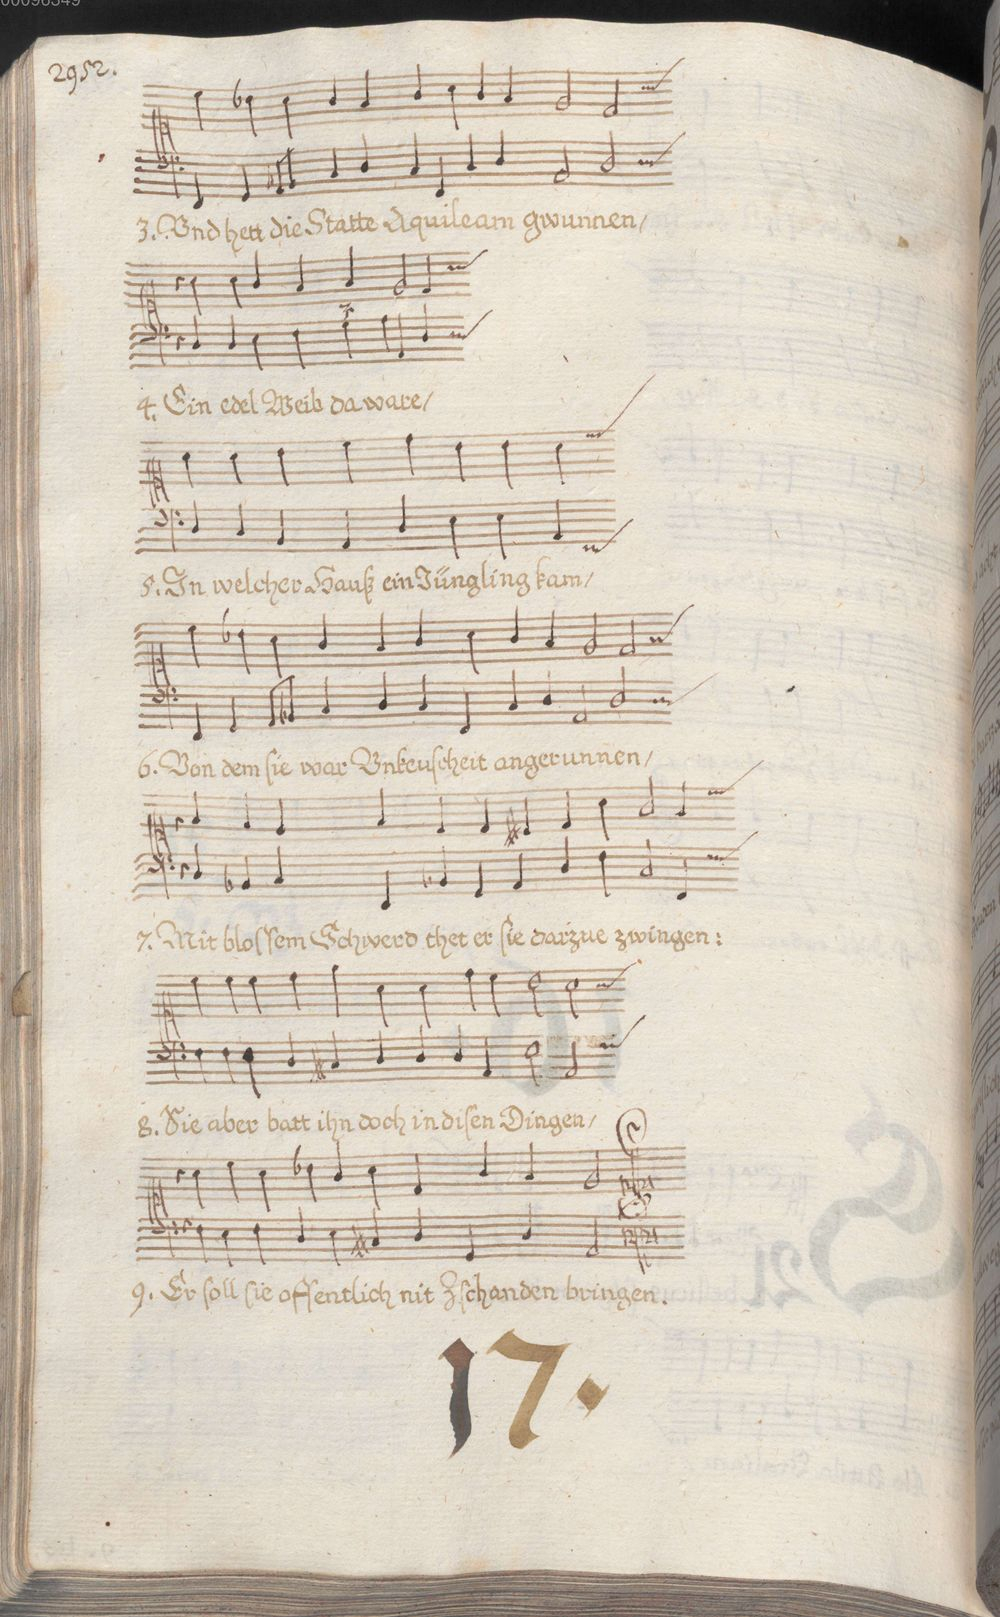 00096349
2952.
3. Vnd hett die Statte Aquileam gwunnen/
4. Ein edel Weib da ware/
5. In welcher Hauß ein Jüngling kam/
6. Von dem sie war Vnkeuscheit angerunnen/
7. Mit blossem Schwerd thet er sie darzue zwingen:
8. Sie aber batt ihn doch in disen Dingen/
9. Er soll sie offentlich nit Zschanden bringen.
17.